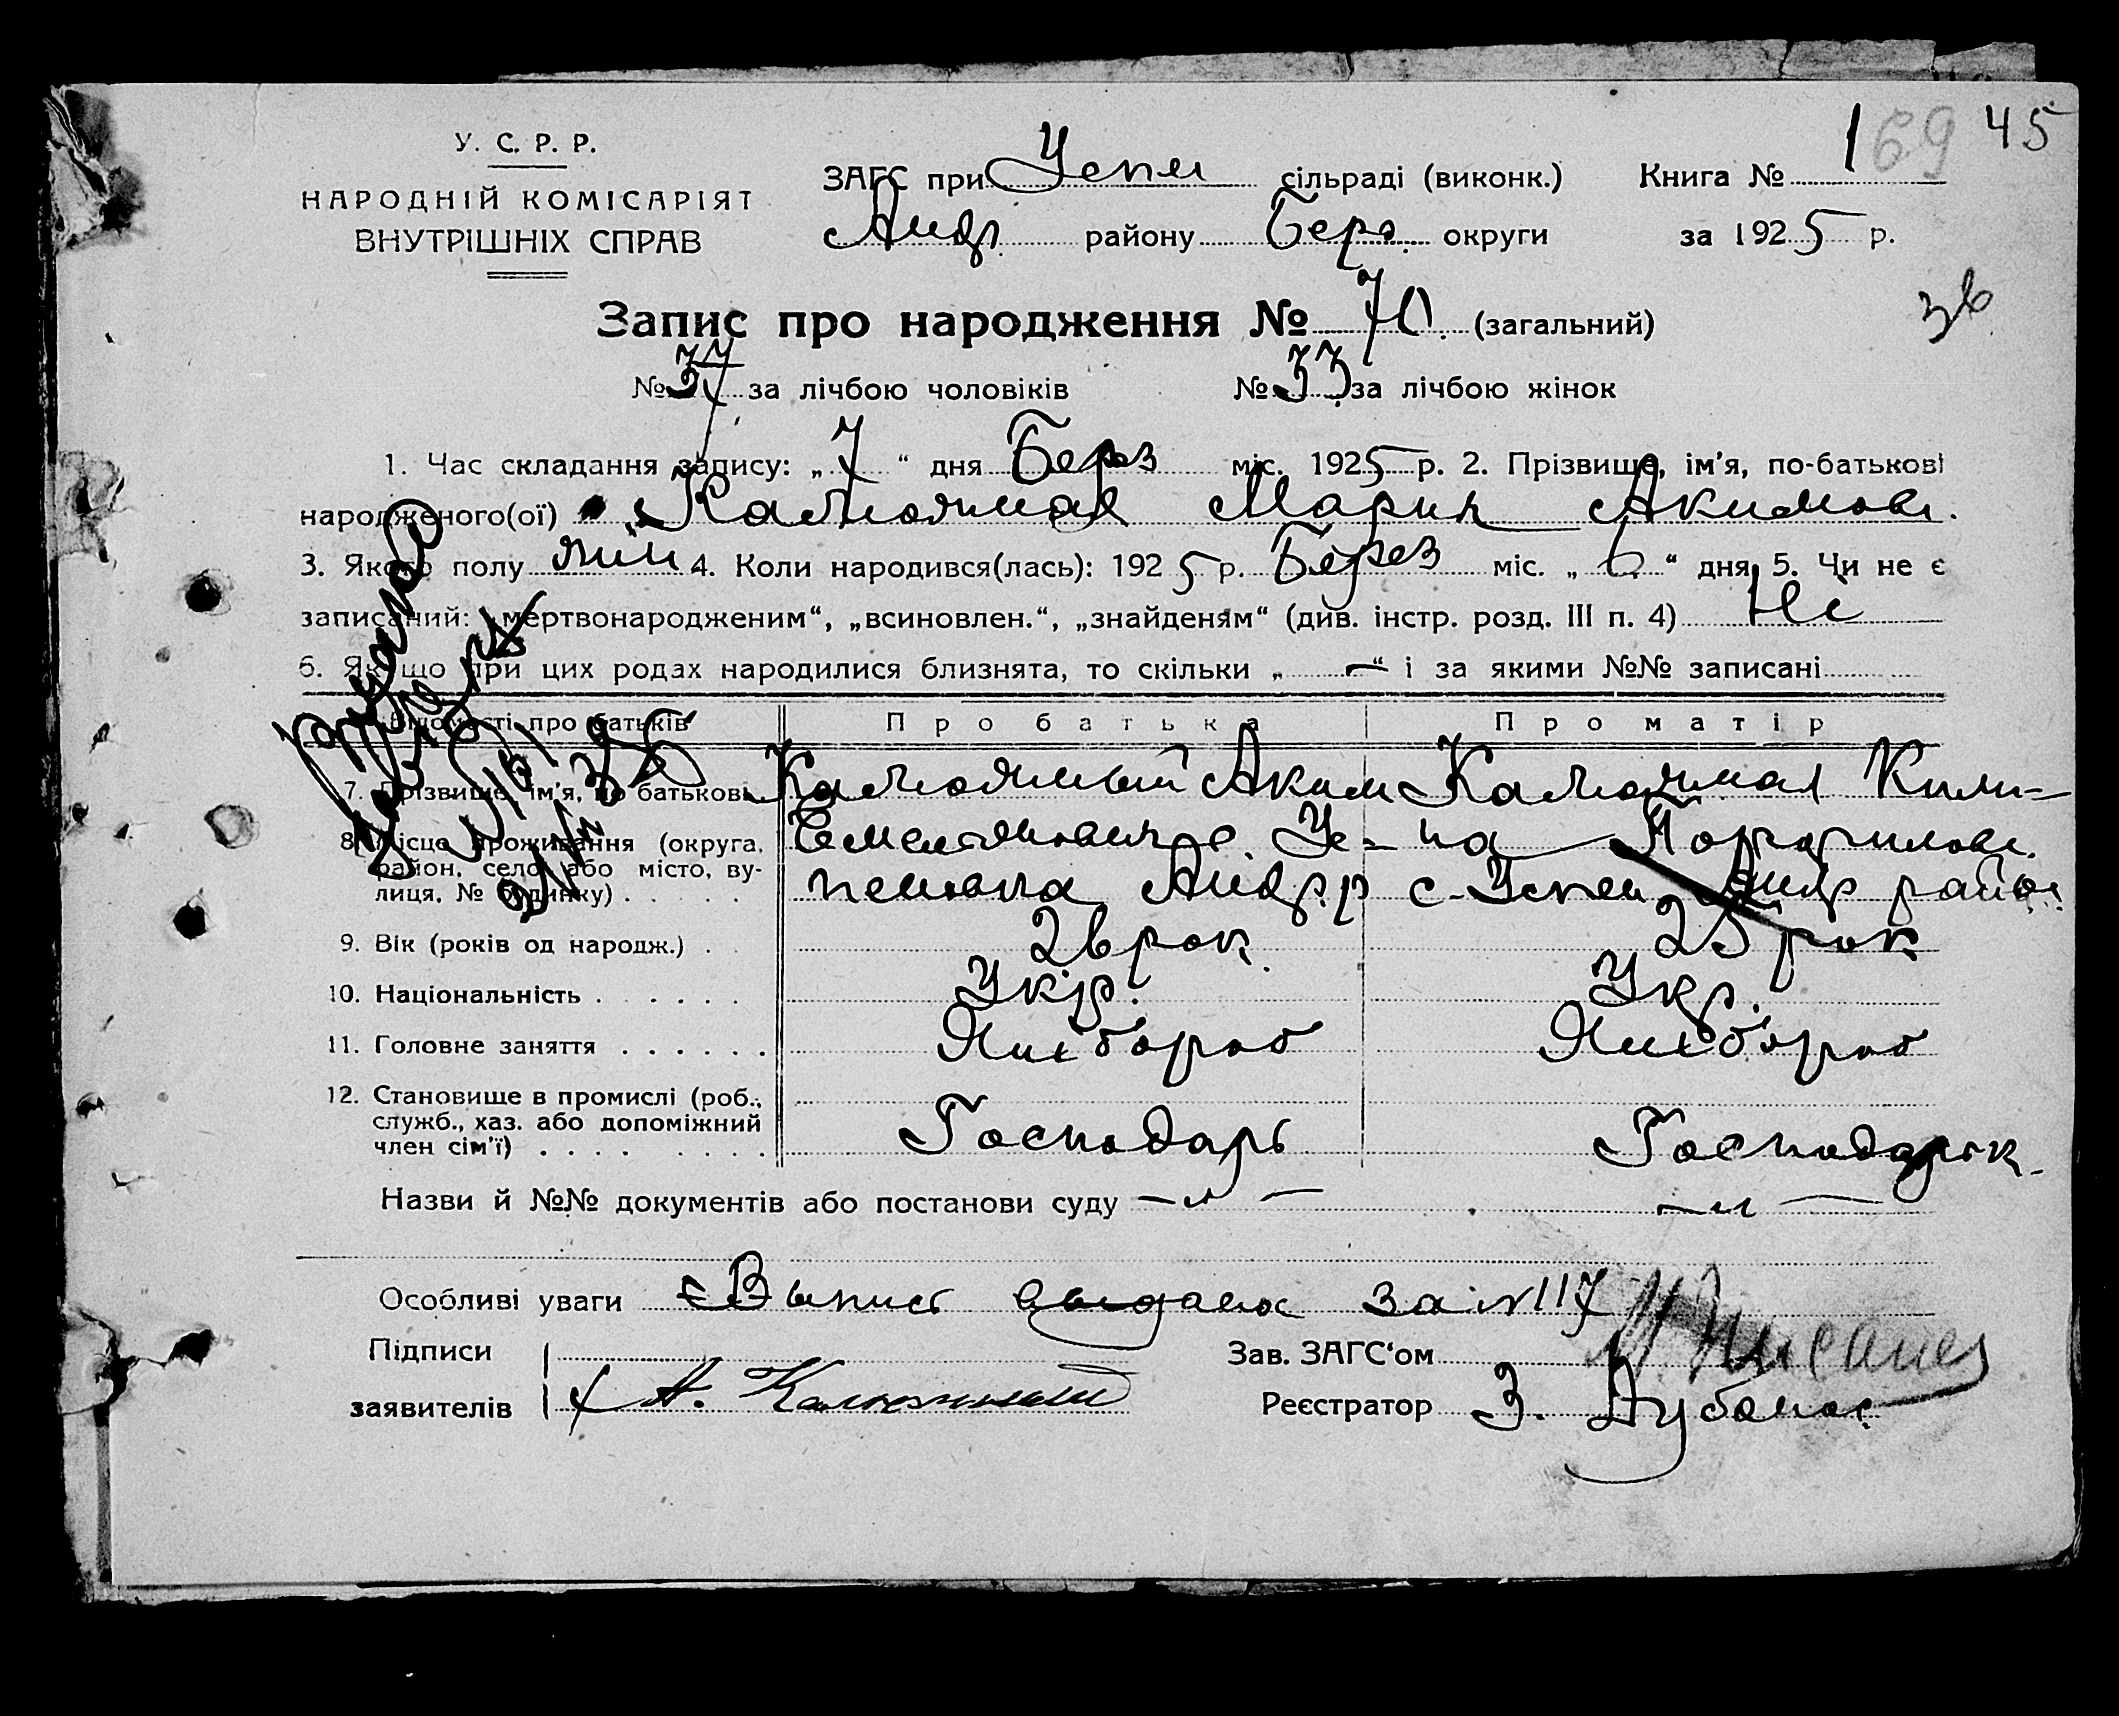 169 45
У. С. Р. Р.
НАРОДНІЙ КОМІСАРІЯТ
ВНУТРІШНІХ СПРАВ
ЗАГС при Успен сільраді (виконк.) Книга № 1
Андр. району Берд. округи за 1925 р.
Запис про народження № 70 (загальний)
№ 37 за лічбою чоловіків № 33 за лічбою жінок
1. Час складання запису: „7“ дня Берез міс. 1925 р. 2. Прізвище, ім'я, по-батькові
народженого(ої) Калюжная Мария Акимовн.
3. Якого полу жін 4. Коли народився(лась): 1925 р. Берез міс. „6“ дня 5. Чи не є
записаний: „мертвонародженим“, „всиновлен.“, „знайденям“ (див. інстр. розд. III п. 4) Ні
6. Якщо при цих родах народилися близнята, то скільки „—“ і за якими №№ записані
Відомості про батьків Про батька Про матір
7. Прізвище, ім'я, по батькові Калюжный Аким Калюжная Кили-
8. Місце проживання (округа, район, село або місто, вулиця, № будинку) Семеновичь с. Ус- на Порфиловн.
пеновка Андр. р с. Успен Андр район
9. Вік (років од народж.) 26 рок 25 рок
10. Національність Укр. Укр.
11. Головне заняття Хлібороб Хлібороб
12. Становище в промислі (роб., служб., хаз. або допоміжний член сім'ї) Господарь Господарьк.
Назви й №№ документів або постанови суду — " — — " —
Особливі уваги Выпись выдана за № 117
Підписи
заявителів А. Калюжный
Зав. ЗАГС'ом
Реєстратор З.